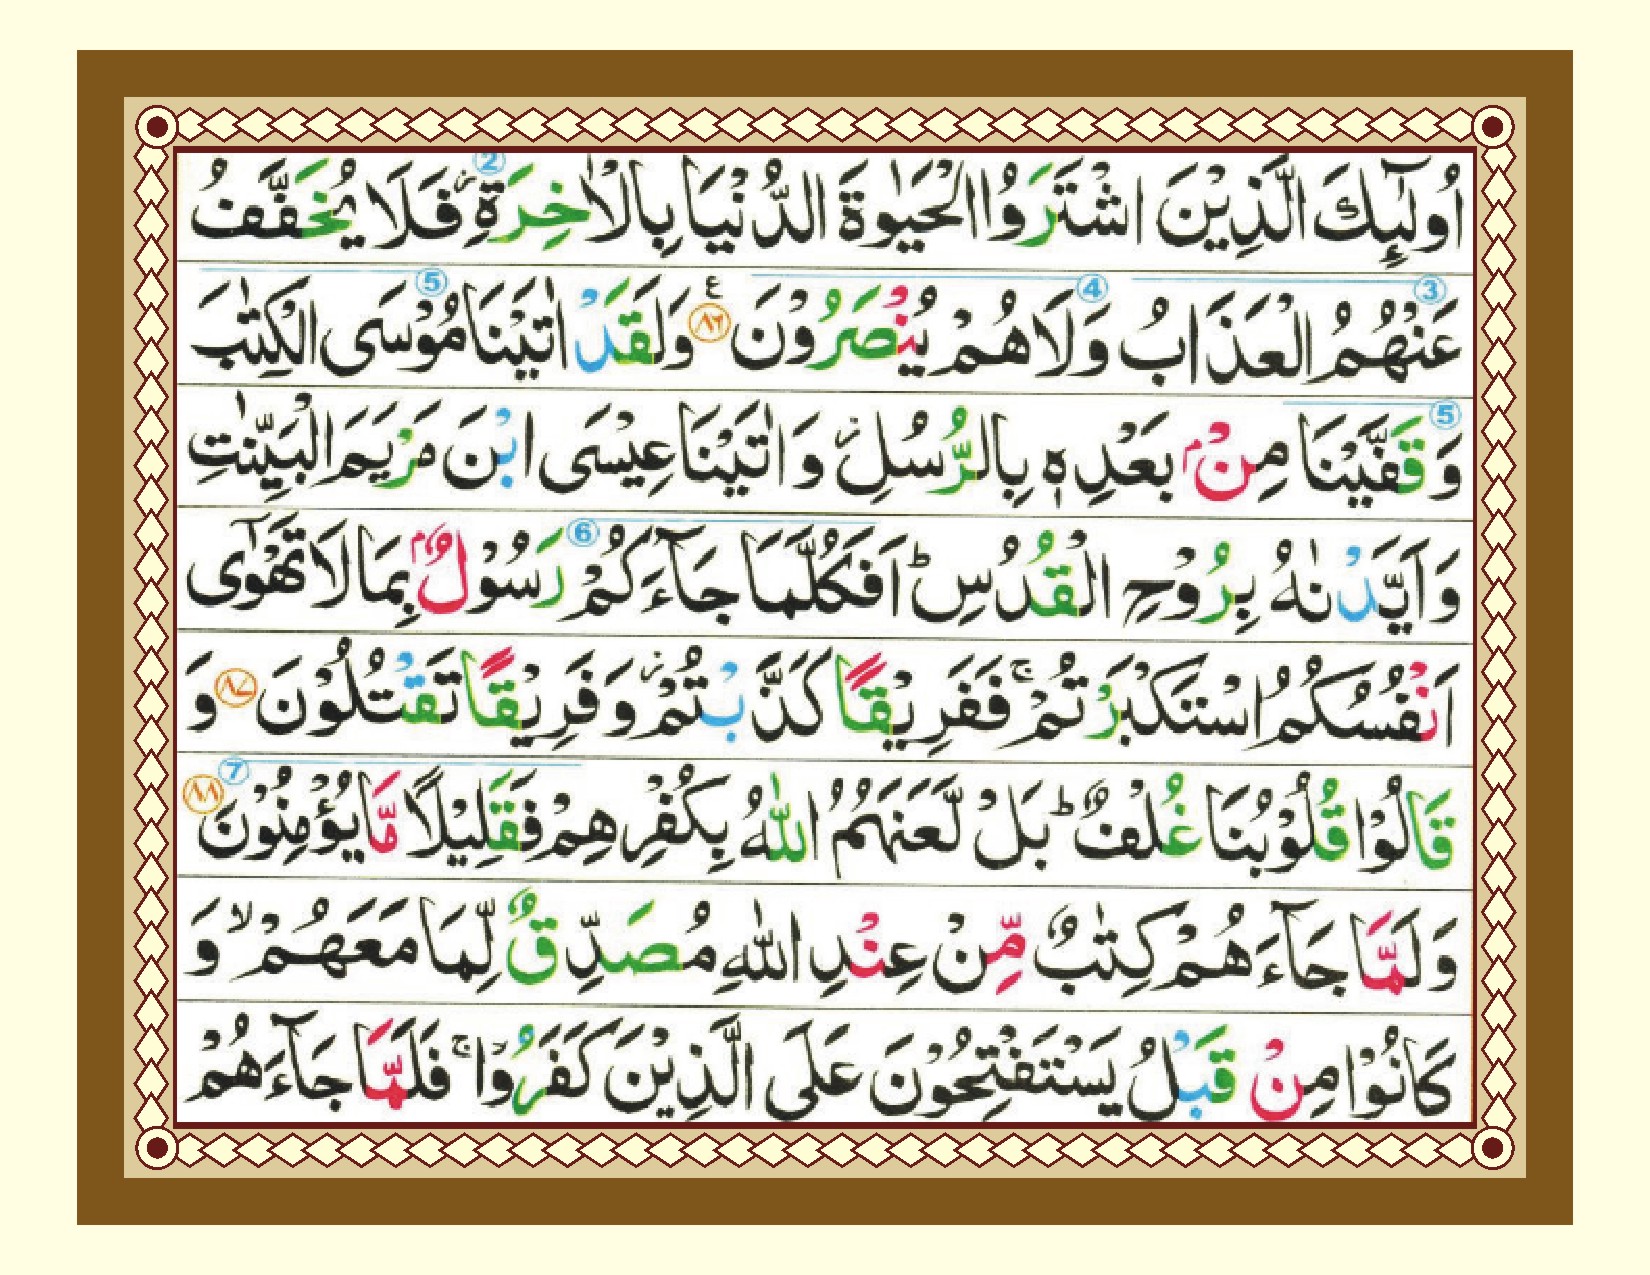 اُولٰٓئِكَ الَّذِيْنَ اشْتَرَوُا الْحَيٰوةَ الدُّنْيَا بِالْاٰخِرَةِ ۫ فَلَا يُخَفَّفُ
عَنْهُمُ الْعَذَابُ وَلَا هُمْ يُنْصَرُوْنَ ﴿٨٦﴾ وَلَقَدْ اٰتَيْنَا مُوْسَى الْكِتٰبَ
وَقَفَّيْنَا مِنْۢ بَعْدِهٖ بِالرُّسُلِ ۫ وَاٰتَيْنَا عِيْسَى ابْنَ مَرْيَمَ الْبَيِّنٰتِ
وَاَيَّدْنٰهُ بِرُوْحِ الْقُدُسِ ؕ اَفَكُلَّمَا جَآءَكُمْ رَسُوْلٌۢ بِمَا لَا تَهْوٰٓى
اَنْفُسُكُمُ اسْتَكْبَرْتُمْ ۚ فَفَرِيْقًا كَذَّبْتُمْ ۫ وَفَرِيْقًا تَقْتُلُوْنَ ﴿٨٧﴾ وَ
قَالُوْا قُلُوْبُنَا غُلْفٌ ؕ بَلْ لَّعَنَهُمُ اللّٰهُ بِكُفْرِهِمْ فَقَلِيْلًا مَّا يُؤْمِنُوْنَ ﴿٨٨﴾
وَلَمَّا جَآءَهُمْ كِتٰبٌ مِّنْ عِنْدِ اللّٰهِ مُصَدِّقٌ لِّمَا مَعَهُمْ ۙ وَ
كَانُوْا مِنْ قَبْلُ يَسْتَفْتِحُوْنَ عَلَى الَّذِيْنَ كَفَرُوْا ۚ فَلَمَّا جَآءَهُمْ